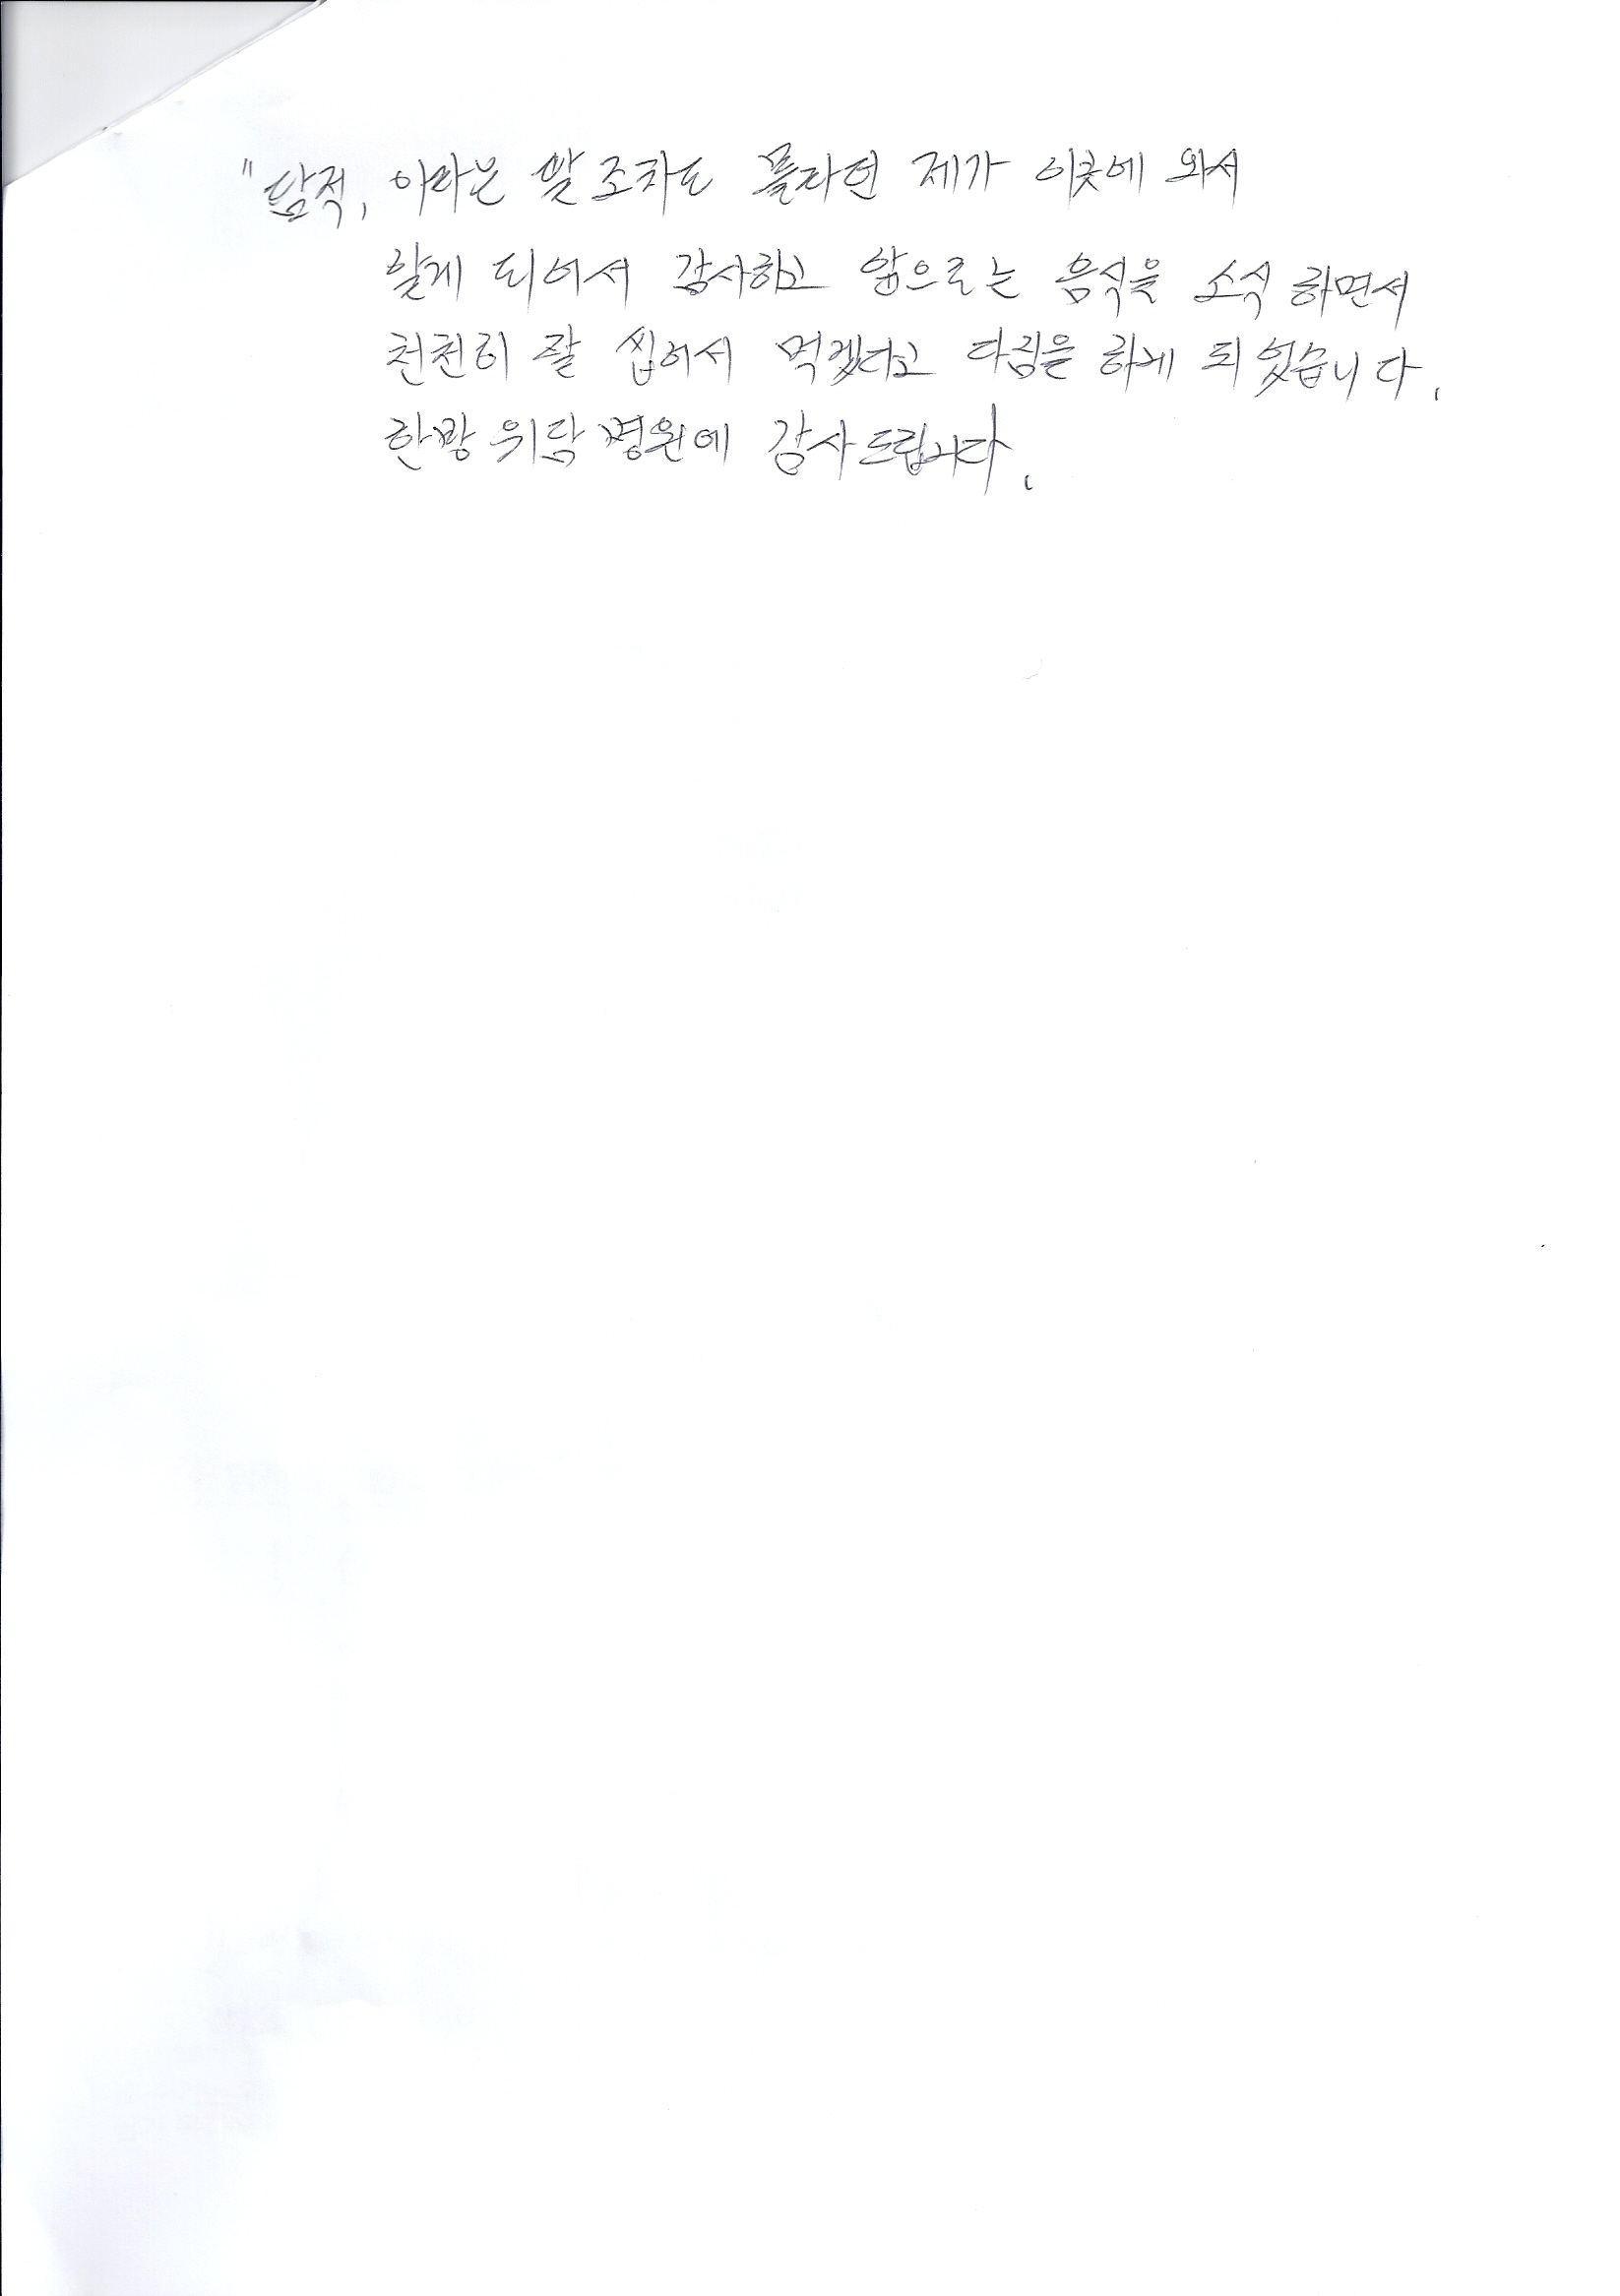 "담적, 이라는 말 조차도 몰라던 제가 이곳에 와서
알게 되어서 감사하고 앞으로는 음식을 소식 하면서
천천히 잘 씹어서 먹겠다고 다짐을 하게 되었습니다.
한방 위담 병원에 감사드립니다.